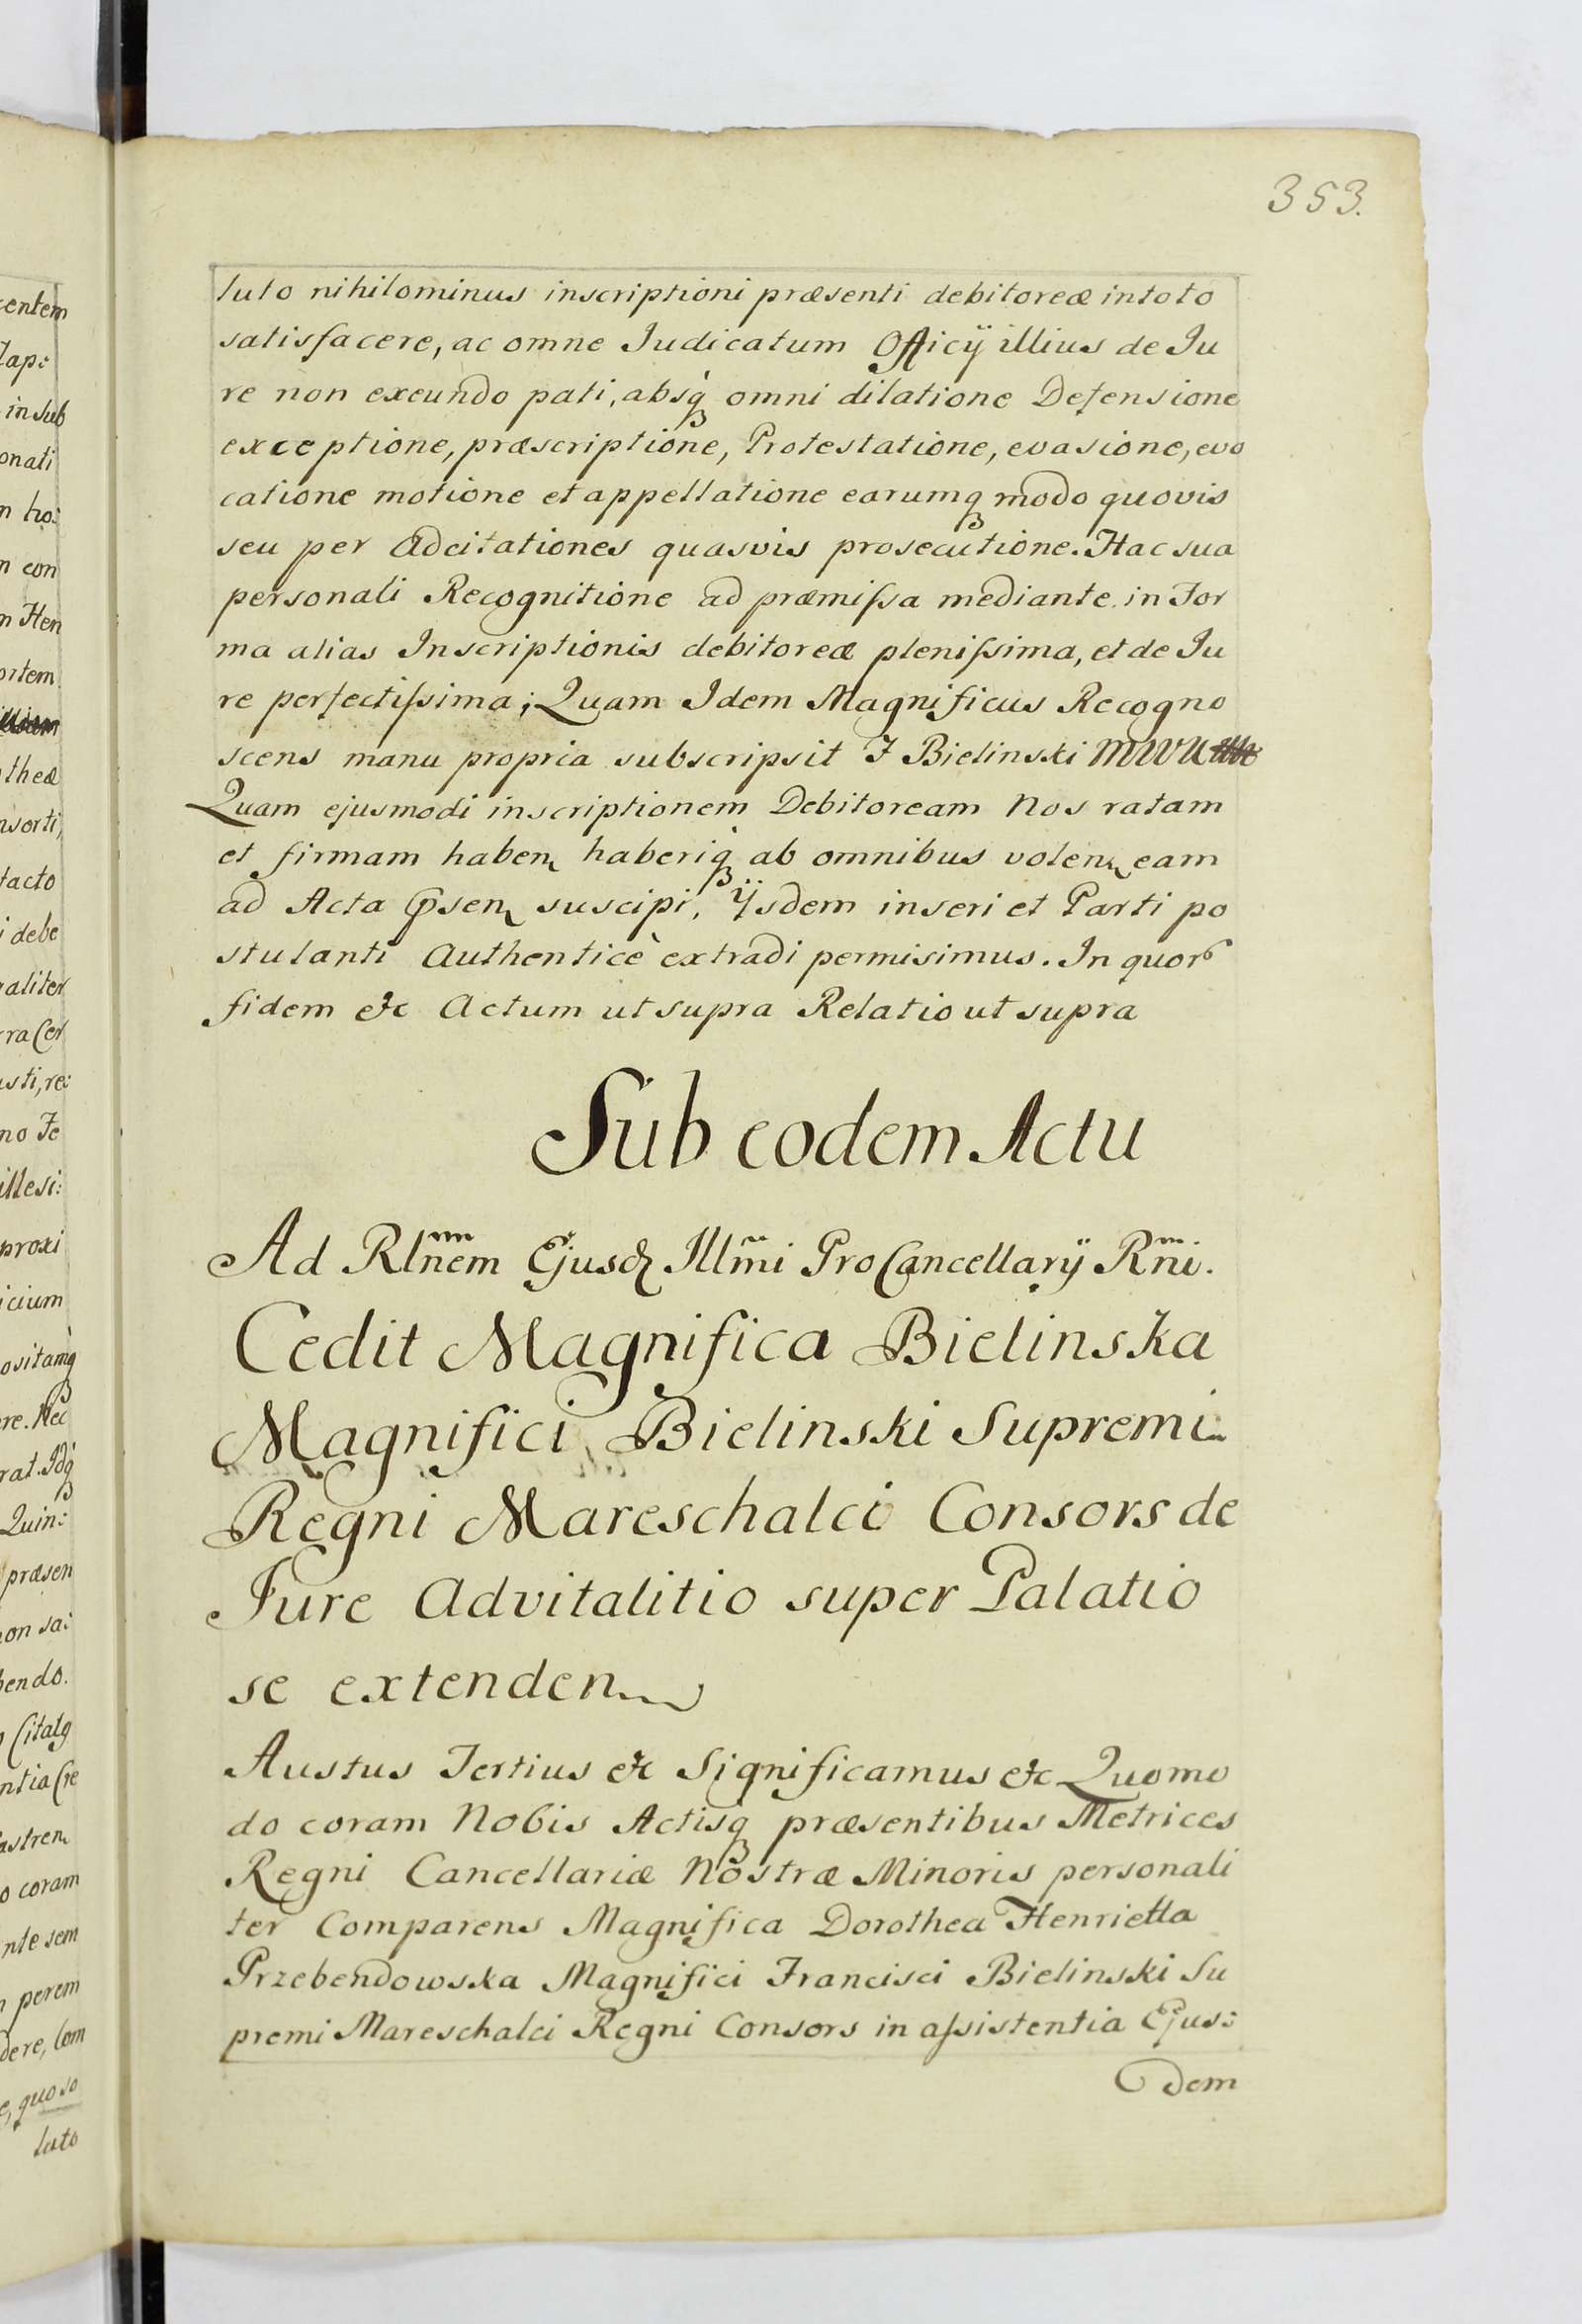 353.
luto nihilominus inscriptioni præsenti debitoreæ in toto
satisfacere, ac omne Judicatum Officÿ illius de Ju
re non exeundo pati, absq̀ omni dilatione Defensione
exceptione, præscriptione, Protestatione, evasione, evo
catione motione et appellatione earumq modo quovis
seu per Adcitationes quasvis prosecutione. Hac sua
personali Recognitione ad præmiſsa mediante. in For
ma alias Inscriptionis debitoreæ pleniſsima, et de Ju
re perfectiſsima; Quam Idem Magnificus Recogno
scens manu propria subscripsit F Bielinski MWU
Quam ejusmodi inscriptionem Debitoream Nos ratam
et firmam haben haberiq̀ ab omnibus volen eam
ad Acta Psen suscipi, Ÿsdem inseri et Parti po
stulanti Authenticè extradi permisimus. In quor
fidem etc Actum ut supra Relatio ut supra
Sub eodem Actu
Ad Rlnem Ejusd Illmi ProCancellarÿ Rni.
Cedit Magnifica Bielinska
Magnifici Bielinski Supremi
Regni Mareschalci Consors de
Jure Advitalitio super Palatio
se extenden
Austus Tertius etc Significamus etc Quomo
do coram Nobis Actisq præsentibus Metrices
Regni Cancellariæ Nostræ Minoris personali
ter Comparens Magnifica Dorothea Henrietta
Przebendowska Magnifici Francisci Bielinski Su
premi Mareschalci Regni Consors in aſsistentia Ejus:
dem